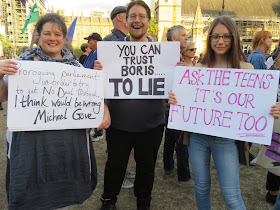 Proroguing parliament
to get No Deal through,
I think would be wrong
Michael Gove
YOU CAN
TRUST
BORIS....
TO LIE
ASK THE TEENS
IT'S OUR
FUTURE TOO